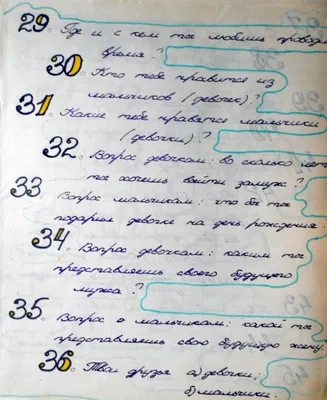 29. Где и с кем ты любишь проводи
время?
30. Кто тебе нравится из
мальчиков (девочек)?
31. Какие тебе нравятся мальчики
(девочки)?
32. Вопрос девочкам: во сколько лет
ты хочешь выйти замуж?
33. Вопрос мальчикам: что бы ты
подарил девочке на день рождения.
34. Вопрос девочкам: каким ты
представляешь своего будущего
мужа?
35. Вопрос о мальчикам: какой ты
представляешь свою будущую жену.
36. Твои друзья а) девочки;
б) мальчики.